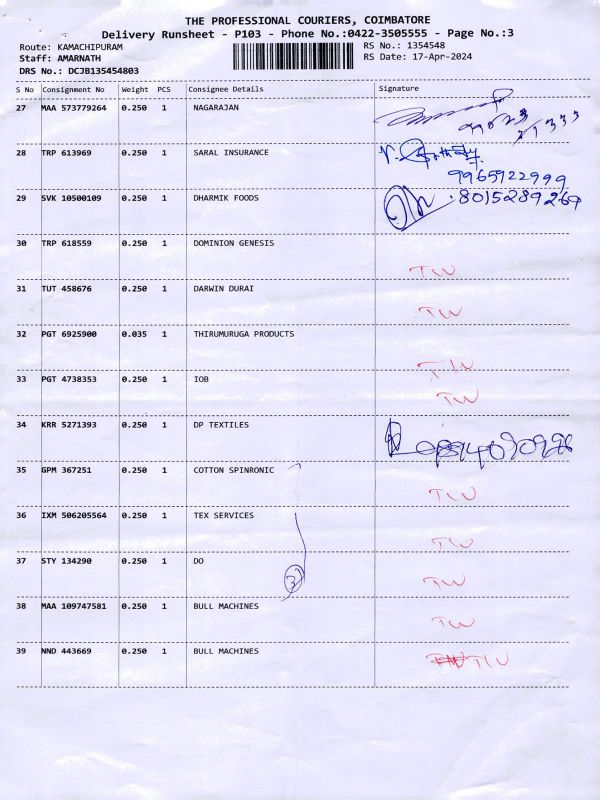 THE PROFESSIONAL COURIERS, COIMBATORE
Delivery Runsheet - P103 - Phone No.:0422-3505555 - Page No.:3
Route: KAMACHIPURAM
RS No.: 1354548
Staff: AMARNATH
RS Date: 17-Apr-2024
DRS No.: DCJB135454803
S No Consignment No Weight PCS Consignee Details Signature
27 MAA 573779264 0.250 1 NAGARAJAN
28 TRP 613969 0.250 1 SARAL INSURANCE
9965922999
29 SVK 10500109 0.250 1 DHARMIK FOODS 8015289269
30 TRP 618559 0.250 1 DOMINION GENESIS
TW
31 TUT 458676 0.250 1 DARWIN DURAI
TW
32 PGT 6925900 0.035 1 THIRUMURUGA PRODUCTS
TW
33 PGT 4738353 0.250 1 IOB
TW
34 KRR 5271393 0.250 1 DP TEXTILES
35 GPM 367251 0.250 1 COTTON SPINRONIC
TW
36 IXM 506205564 0.250 1 TEX SERVICES
TW
37 STY 134290 0.250 1 DO
3 TW
38 MAA 109747581 0.250 1 BULL MACHINES
TW
39 NND 443669 0.250 1 BULL MACHINES
TW